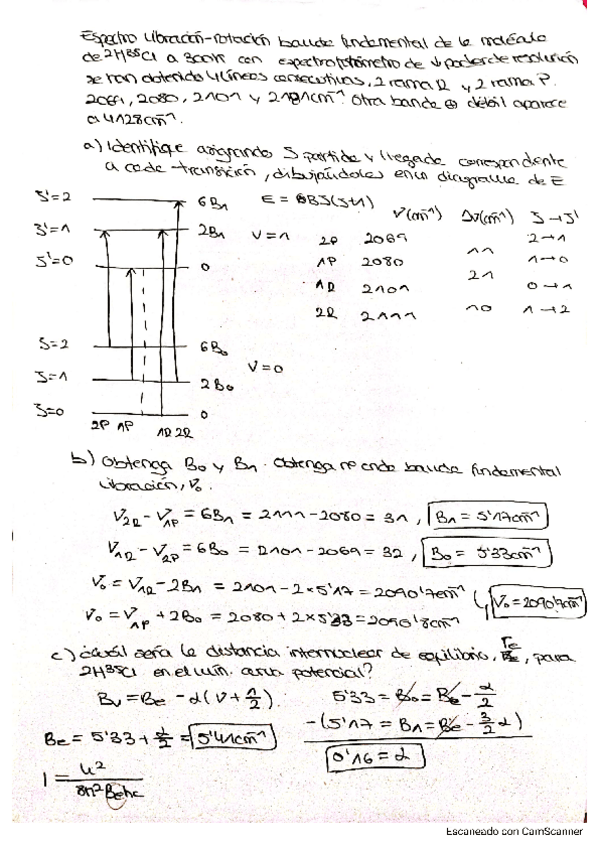 Espectro vibración-rotación banda fundamental de la molécula
de ²H³⁵Cl a 300K con espectrofotómetro de ↓ poder de resolución
se han obtenido 4 líneas consecutivas, 2 rama R y 2 rama P.
2069, 2080, 2101 y 2111cm⁻¹. Otra banda ⊕ débil aparece
a 4128cm⁻¹.
a) Identifique asignando J partida y llegada correspondiente
a cada transición, dibujándolas en un diagrama de E
J'=2 6B₁ E = BJ(J+1) ν(cm⁻¹) Δν(cm⁻¹) J→J'
J'=1 2B₁ V=1 2P 2069 2→1
11
J'=0 0 1P 2080 1→0
21
1R 2101 0→1
J=2 6B₀ 2R 2111 10 1→2
V=0
J=1 2B₀
J=0 0
2P 1P 1R 2R
b) Obtenga B₀ y B₁. Obtenga banda fundamental
vibración, ν₀.
ν₂R - ν₁P = 6B₁ = 2111-2080 = 31, B₁ = 5'17cm⁻¹
ν₁R - ν₂P = 6B₀ = 2101-2069 = 32, B₀ = 5'33cm⁻¹
ν₀ = ν₁R - 2B₁ = 2101 - 2×5'17 = 2090'7cm⁻¹
ν₀ = 2090'7cm⁻¹
ν₀ = ν₁P + 2B₀ = 2080 + 2×5'33 = 2090'8cm⁻¹
c) ¿Cuál sería la distancia internuclear de equilibrio, re, para
²H³⁵Cl en el mín. curva potencial?
Bv = Be - α(v + 1/2) 5'33 = B₀ = Be - α/2
-(5'17 = B₁ = Be - 3/2 α)
Be = 5'33 + α/2 = 5'41cm⁻¹
0'16 = α
I = h² / 8π²Be hc
Escaneado con CamScanner